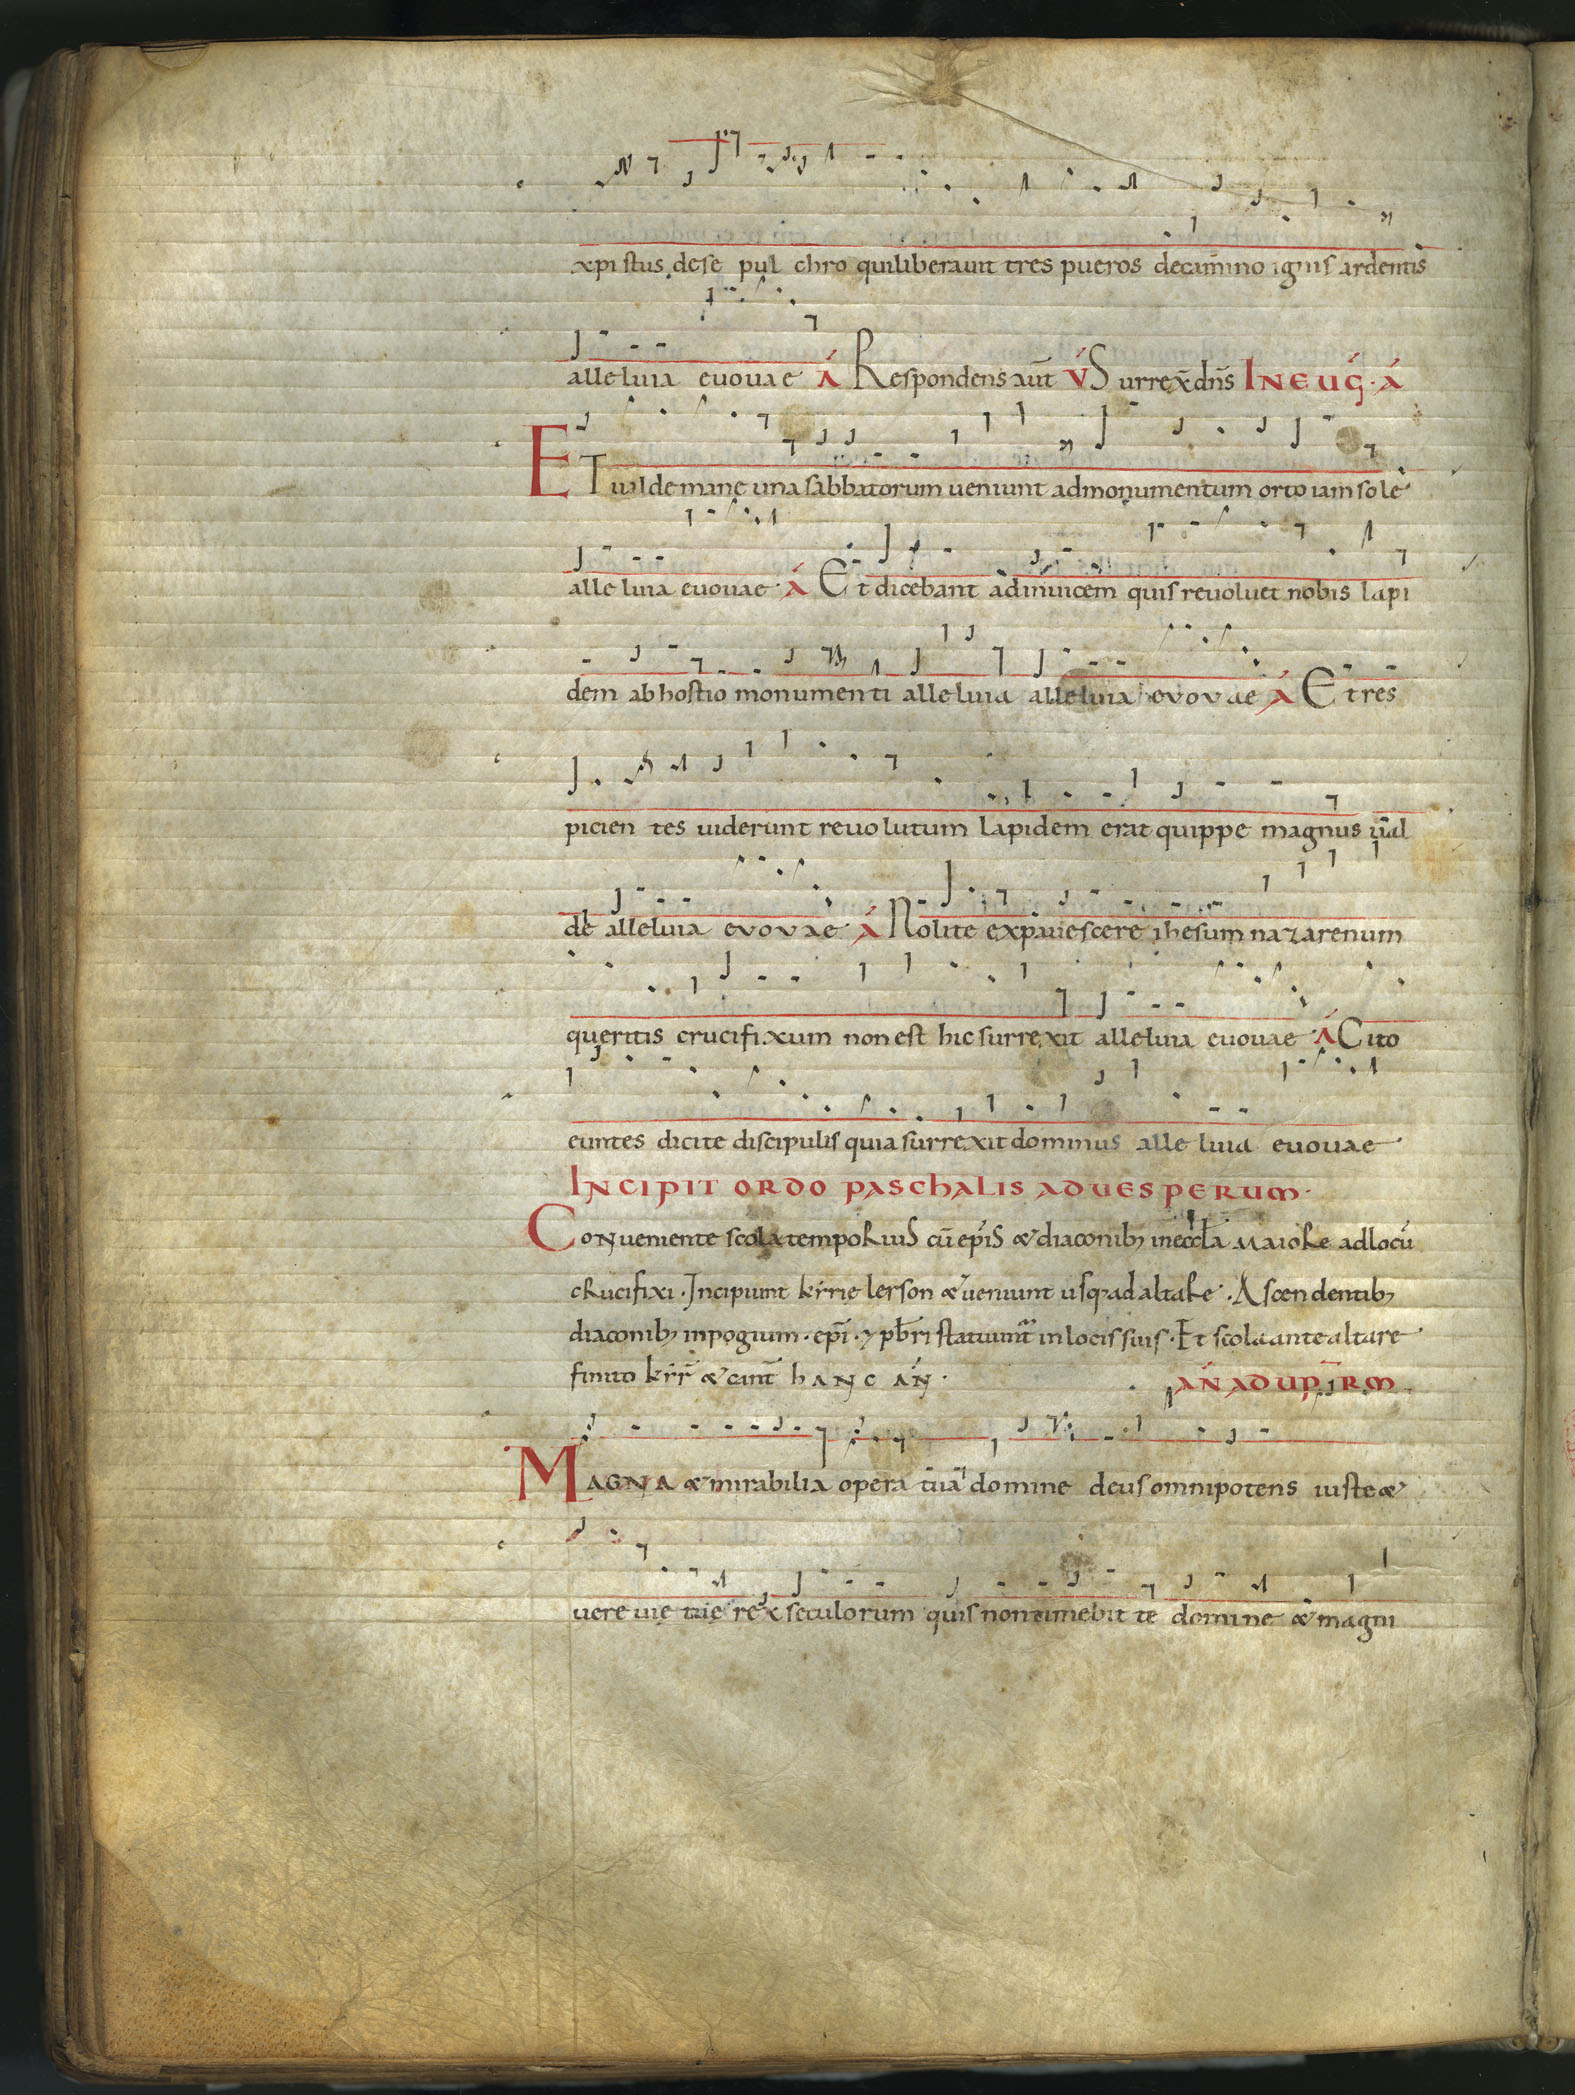 xpistus de se pul chro qui liberavit tres pueros de camino ignis ardentis
alleluia evovae A Respondens aut̄ V Surrex̄ dn̄s IN EUG· A
ET valde mane una sabbatorum veniunt ad monumentum orto iam sole
alleluia evovae· A Et dicebant ad invicem quis revolvet nobis lapi
dem ab hostio monumenti alleluia alleluia evovae A Et res
picien tes viderunt revolutum lapidem erat quippe magnus val
de alleluia evovae· A Nolite expavescere ihesum nazarenum
queritis crucifixum non est hic surrexit alleluia evovae· A Cito
euntes dicite discipulis quia surrexit dominus alleluia evovae
INCIPIT ORDO PASCHALIS AD VESPERUM·
Conveniente scola temporius cū ep̄is & diaconib; in eccl̄a maiore ad locū
crucifixi · Incipiunt kirrie leison & veniunt usq; ad altare · Ascendentib;
diaconib; in pogium · ep̄i · 7 pb̄ri statuunt̄ in locis suis · Et scola ante altare
finito kīrr̄ & cant̄ hANC AN̄ · AN̄ AD UP̄RM
MAGNA & mirabilia opera tua domine deus omnipotens iuste &
vere vię tuę rex seculorum quis non timebit te domine & magni